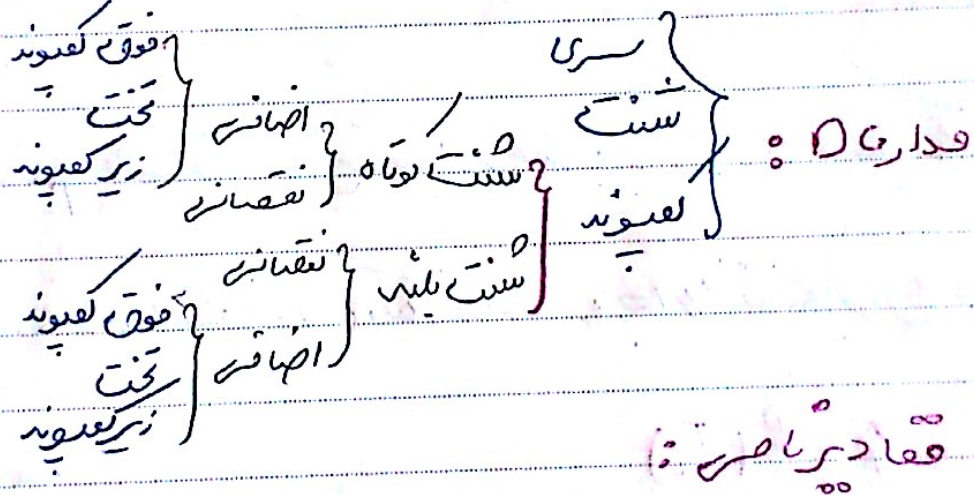 مدارهای DC :
سری
شنت
کمپوند
شنت کوتاه
شنت بلند
اضافی
نقصانی
نقصانی
اضافی
فوق کمپوند
تخت
زیر کمپوند
فوق کمپوند
تخت
زیر کمپوند
مقادیر نامی :